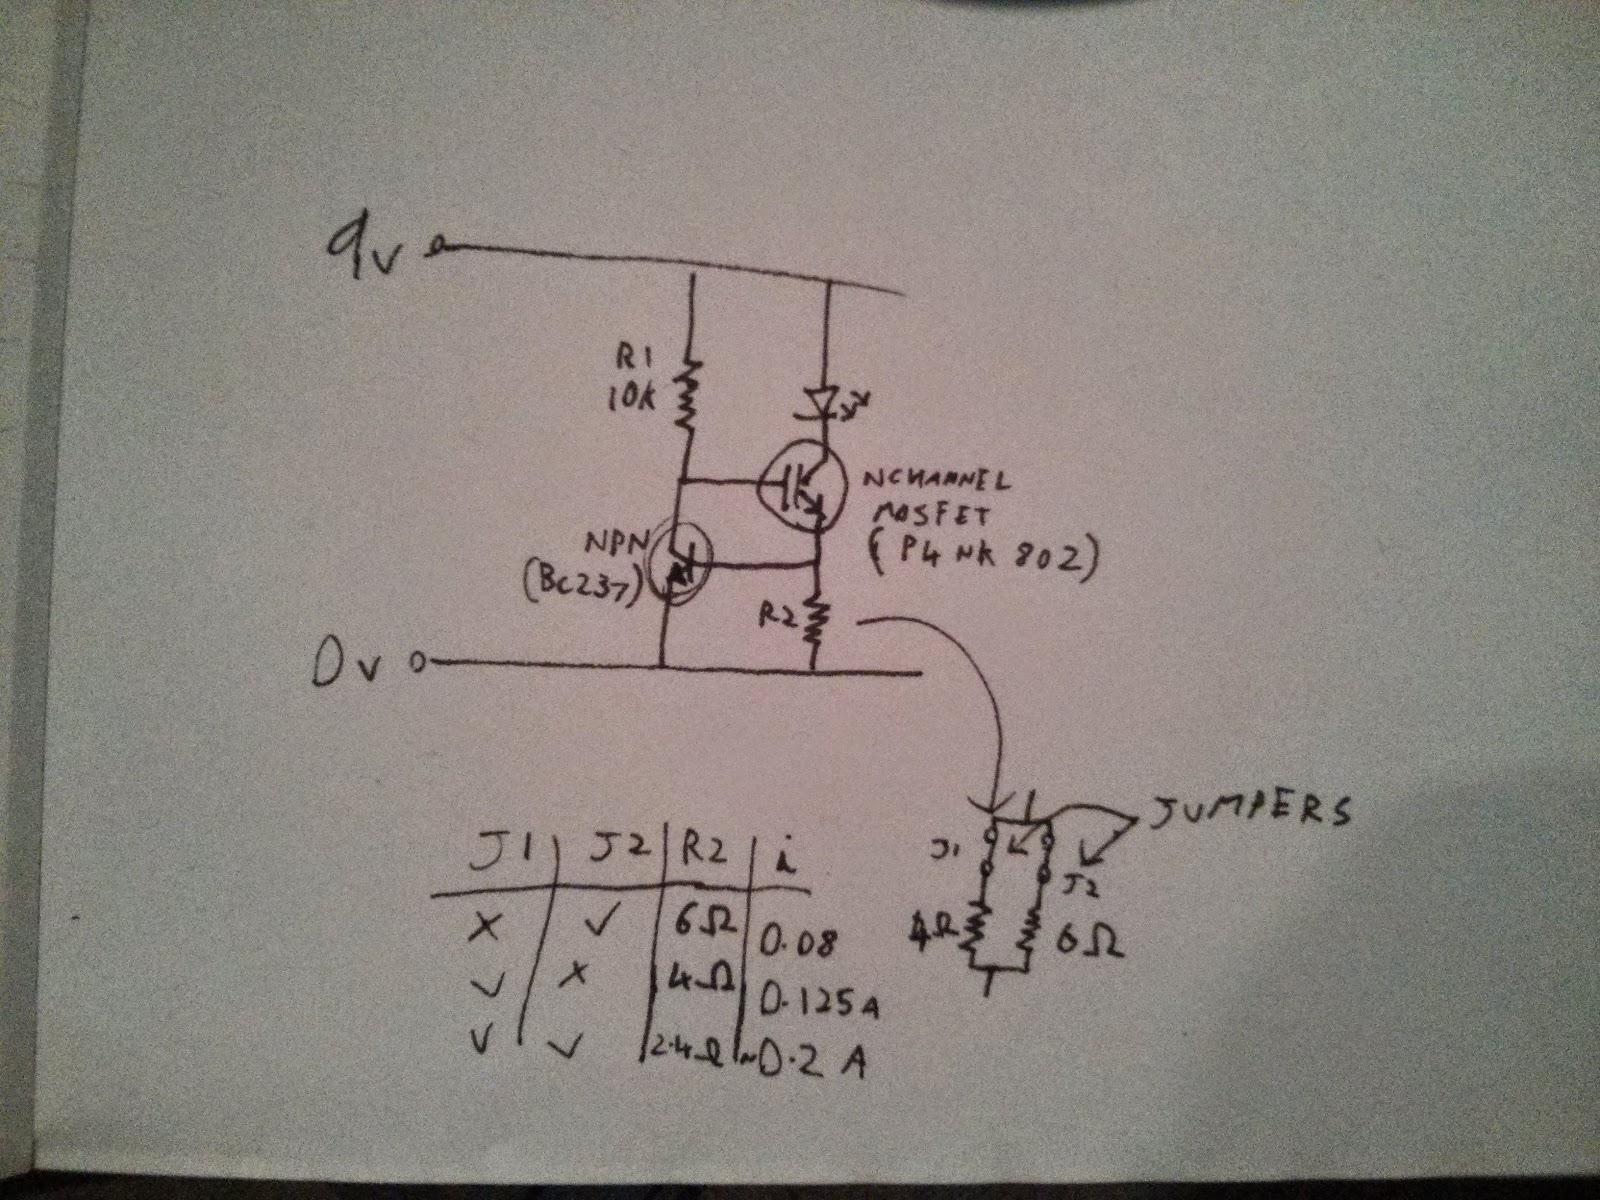 9v
R1
10K
NCHANNEL
MOSFET
(P4NK802)
NPN
(BC237)
R2
0v
JUMPERS
J1
J2
4Ω
6Ω
J1 J2 R2 i
x ✓ 6Ω 0.08
✓ x 4Ω 0.125A
✓ ✓ 2.4Ω ~0.2 A